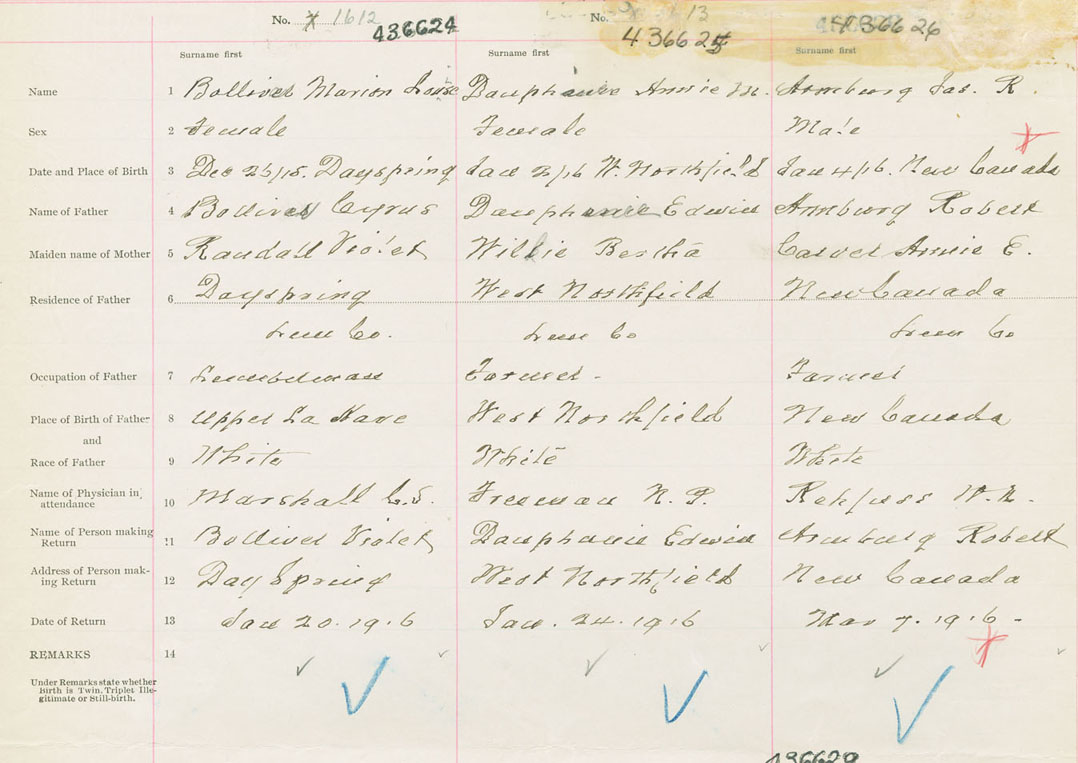 No. 1612 No. 13
436624 436625 436626
Surname first Surname first Surname first
Name 1 Bolliver Marion Louise Dauphanie Annie M. Armburg Jas. R.
Sex 2 Female Female Male
Date and Place of Birth 3 Dec 25/15. Dayspring Jan 2/16 W. Northfield Jan 4/16. New Canada
Name of Father 4 Bolliver Cyrus Dauphanie Edwin Armburg Robert
Maiden name of Mother 5 Randall Violet Willie Bertha Carver Annie E.
Residence of Father 6 Dayspring West Northfield New Canada
Lun Co. Lun Co Lun Co
Occupation of Father 7 Lumberman Farmer - Farmer
Place of Birth of Father 8 Upper La Have West Northfield New Canada
and
Race of Father 9 White White White
Name of Physician in attendance 10 Marshall C.S. Freeman N. P. Rehfuss W. N.
Name of Person making Return 11 Bolliver Violet Dauphanie Edwin Armburg Robert
Address of Person making Return 12 Day Spring West Northfield New Canada
Date of Return 13 Jan 20. 1916 Jan. 24. 1916 Mar 7. 1916 -
REMARKS 14
Under Remarks state whether
Birth is Twin, Triplet Ille-
gitimate or Still-birth.
436629